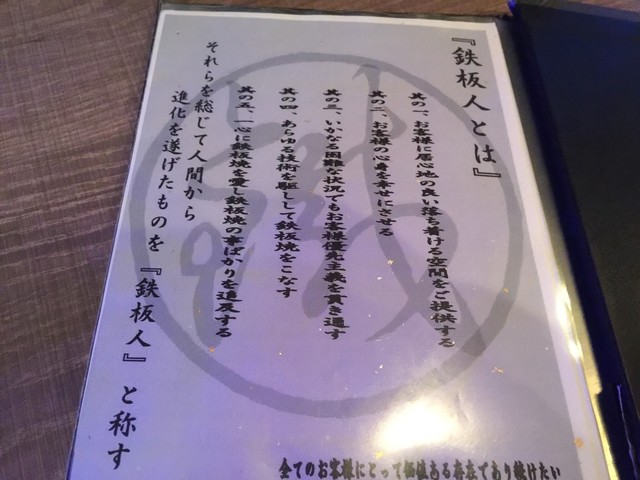 『鉄板人とは』
其の一、お客様に居心地の良い落ち着ける空間をご提供する
其の二、お客様の心身を幸せにさせる
其の三、いかなる困難な状況でもお客様優先主義を貫き通す
其の四、あらゆる技術を駆使して鉄板焼をこなす
其の五、一心に鉄板焼を愛し鉄板焼の事ばかりを追及する
それらを総じて人間から
進化を遂げたものを『鉄板人』と称す
全てのお客様にとって価値ある存在であり続けたい